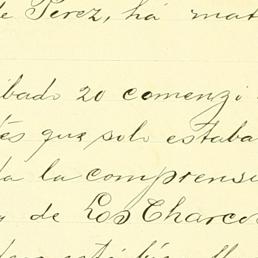 de Perez, há mat
ábado 20 comenzi
és que solo estaba
da la comprensi
de Los Charco